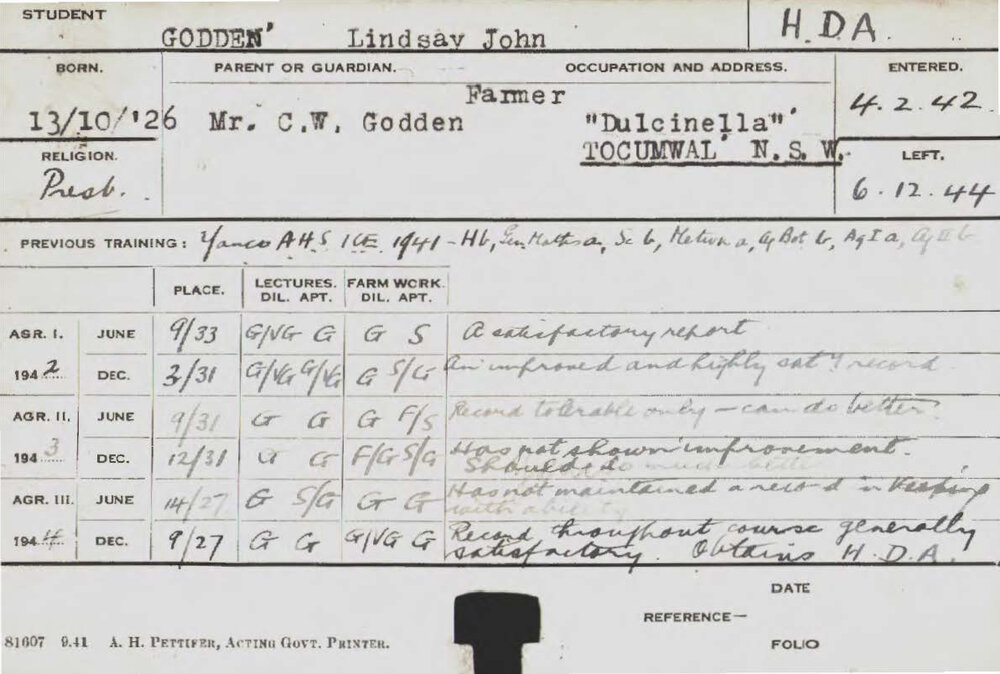 STUDENT
GODDEN' Lindsay John H.D.A.
BORN. PARENT OR GUARDIAN. OCCUPATION AND ADDRESS. ENTERED.
Farmer
13/10/'26 Mr. C.W. Godden "Dulcinella"' 4.2.42
TOCUMWAL N.S.W.
RELIGION. LEFT.
Presb. 6.12.44
PREVIOUS TRAINING: Yanco A.H.S. 1941 - Hb, Gen Maths a, Sc b, a, Ag Bot b, Ag I a, Ag II b
PLACE. LECTURES. FARM WORK.
DIL. APT. DIL. APT.
AGR. I. JUNE 9/33 G/VG G G S A satisfactory report
1942 DEC. 3/31 G/VG G/VG G S/G An improved and highly sat'y record
AGR. II. JUNE 9/31 G G G F/S Record tolerable only - can do better.
1943 DEC. 12/31 G G F/G S/G Has not shown improvement.
Should do much better
AGR. III. JUNE 14/27 G S/G G G Has not maintained a record in keeping
with ability
1944 DEC. 9/27 G G G/VG G Record throughout course generally
satisfactory. Obtains H.D.A.
DATE
REFERENCE—
81607 9.41 A. H. PETTIFER, ACTING GOVT. PRINTER. FOLIO